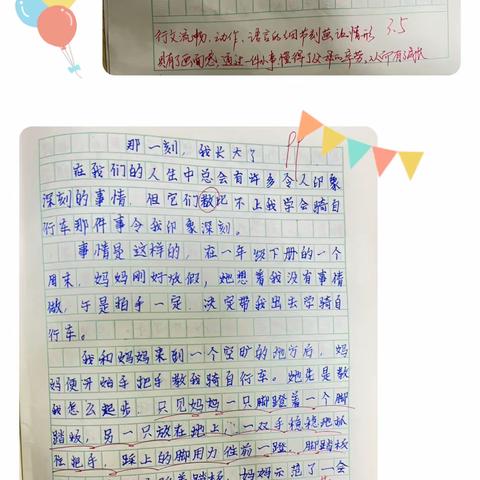 行文流畅，动作、语言的细节刻画让情形 3.5
具有了画面感，通过一件小事懂得了父母的辛苦，从而有了成长
那一刻，我长大了
在我们的人生中总会有许多令人印象
深刻的事情，但它们都比不上我学会骑自
行车那件事令我印象深刻。
事情是这样的，在一年级下册的一个
周末，妈妈刚好放假，她想着我没有事情
做，于是拍手一定，决定带我出去学骑自
行车。
我和妈妈来到一个空旷的地方后，妈
妈便开始手把手教我骑自行车。她先是教
我怎么起步，只见妈妈一只脚蹬着一个脚
踏板，另一只放在地上，一双手稳稳地抓
住把手，踩上的脚用力往前一蹬，脚踏板
着踏板，妈妈示范了一会